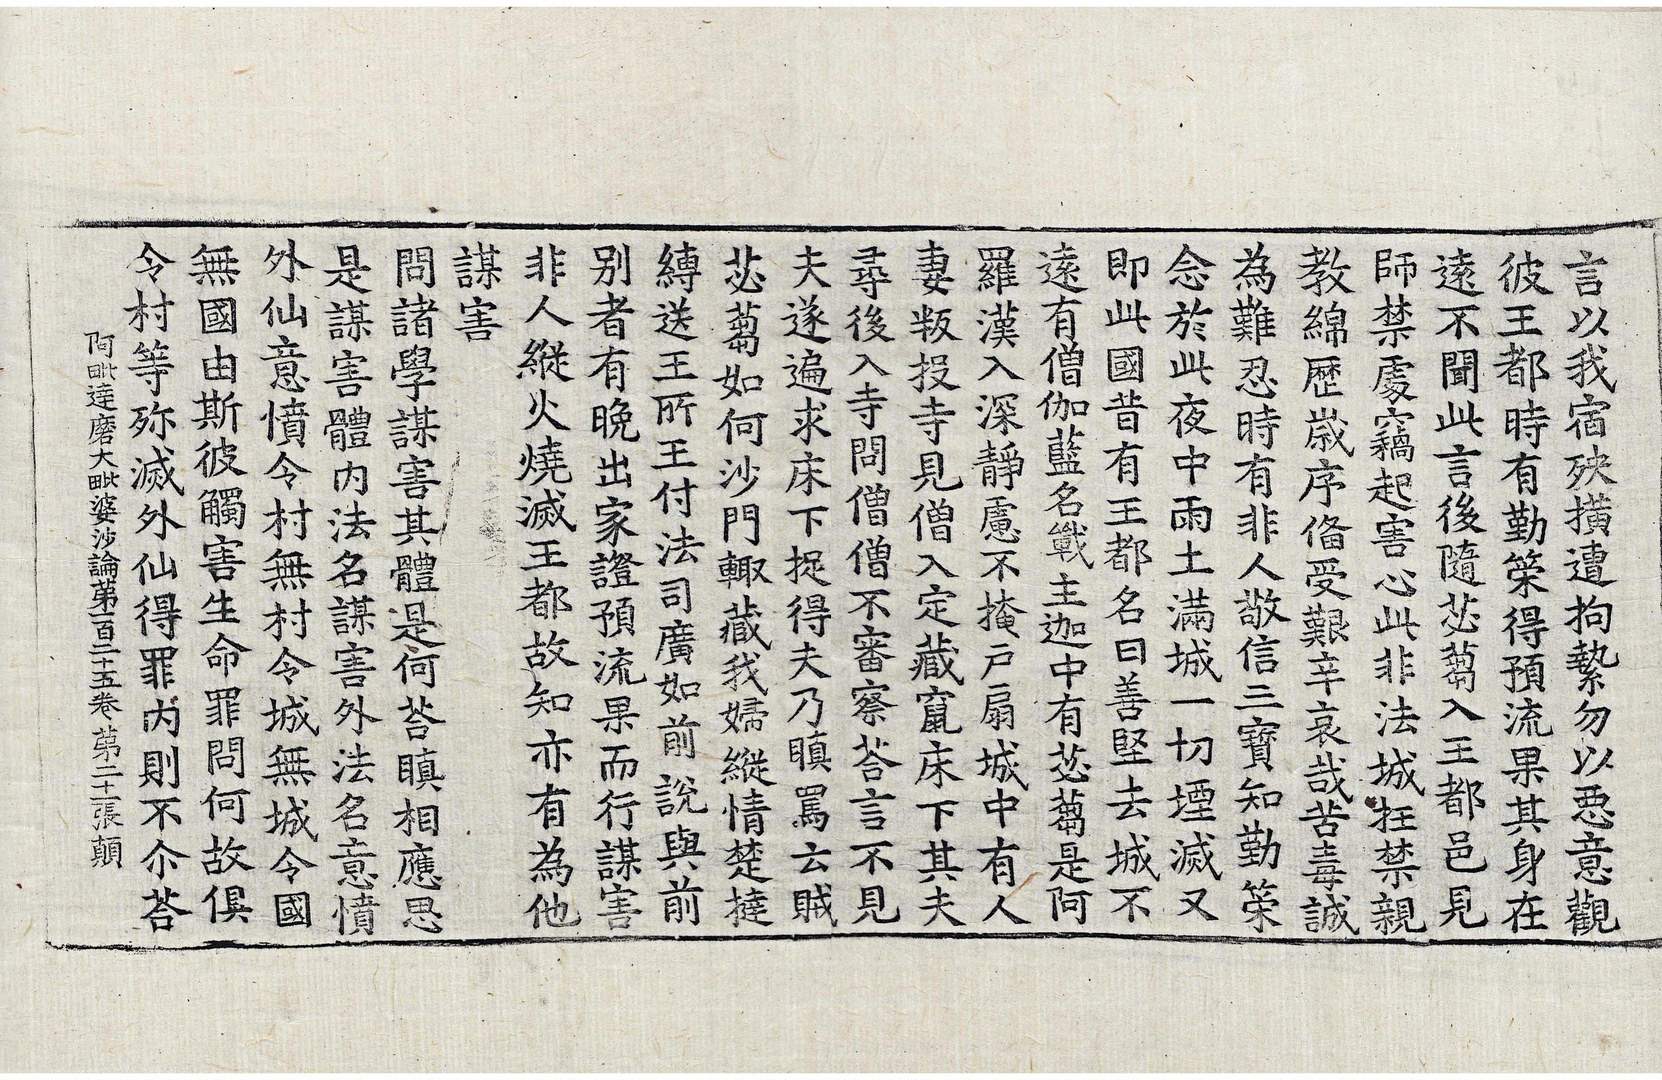 言以我宿殃撗遭拘縶勿以惡意觀
彼王都時有勤䇿得預流果其身在
遠不聞此言後隨苾蒭入王都邑見
師禁處竊起害心此非法城狂禁親
教綿歷歲序俻受艱辛哀哉苦毒誠
為難忍時有非人敬信三寶知勤䇿
念於此夜中雨土滿城一切堙滅又
即此國昔有王都名曰善堅去城不
遠有僧伽藍名氎主迦中有苾蒭是阿
羅漢入深靜慮不掩戶扇城中有人
妻叛投寺見僧入定藏竄床下其夫
尋後入寺問僧僧不審察荅言不見
夫遂遍求床下捉得夫乃瞋罵云賊
苾蒭如何沙門輙藏我婦縱情楚撻
縛送王所王付法司廣如前說與前
別者有晚出家證預流果而行謀害
非人縱火燒滅王都故知亦有為他
謀害
問諸學謀害其體是何荅瞋相應思
是謀害體內法名謀害外法名意憤
外仙意憤令村無村令城無城令國
無國由斯彼觸害生命罪問何故俱
令村等殄滅外仙得罪內則不尒荅
阿毗達磨大毗婆沙論第一百二十五卷 第二十張 顛